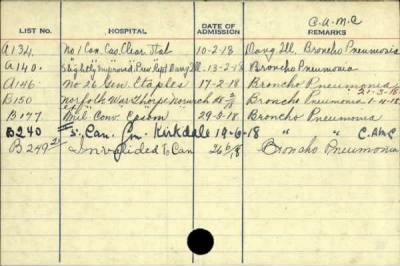 C.A.M.C
LIST NO. HOSPITAL DATE OF ADMISSION REMARKS
A134. No 1 Can. Cas. Clear. Stat 10-2-18 Dang. Ill. Broncho Pneumonia
A140. "Slightly Improved" Prev. Rept Dang Ill. 13-2-18 Broncho Pneumonia
A146 No 26 Gen. Etaples 17-2-18 Broncho Pneumonia
21-3-18
B150 Norfolk War Thorpe Norwich Broncho Pneumonia 1-4-18
B177 Mil. Conv. Epsom 29-3-18 Broncho Pneumonia
B240 Can. Gen. Kirkdale 19-6-18 " " C.A.M.C
B249 Invalided to Can 26/6/18 Broncho Pneumonia